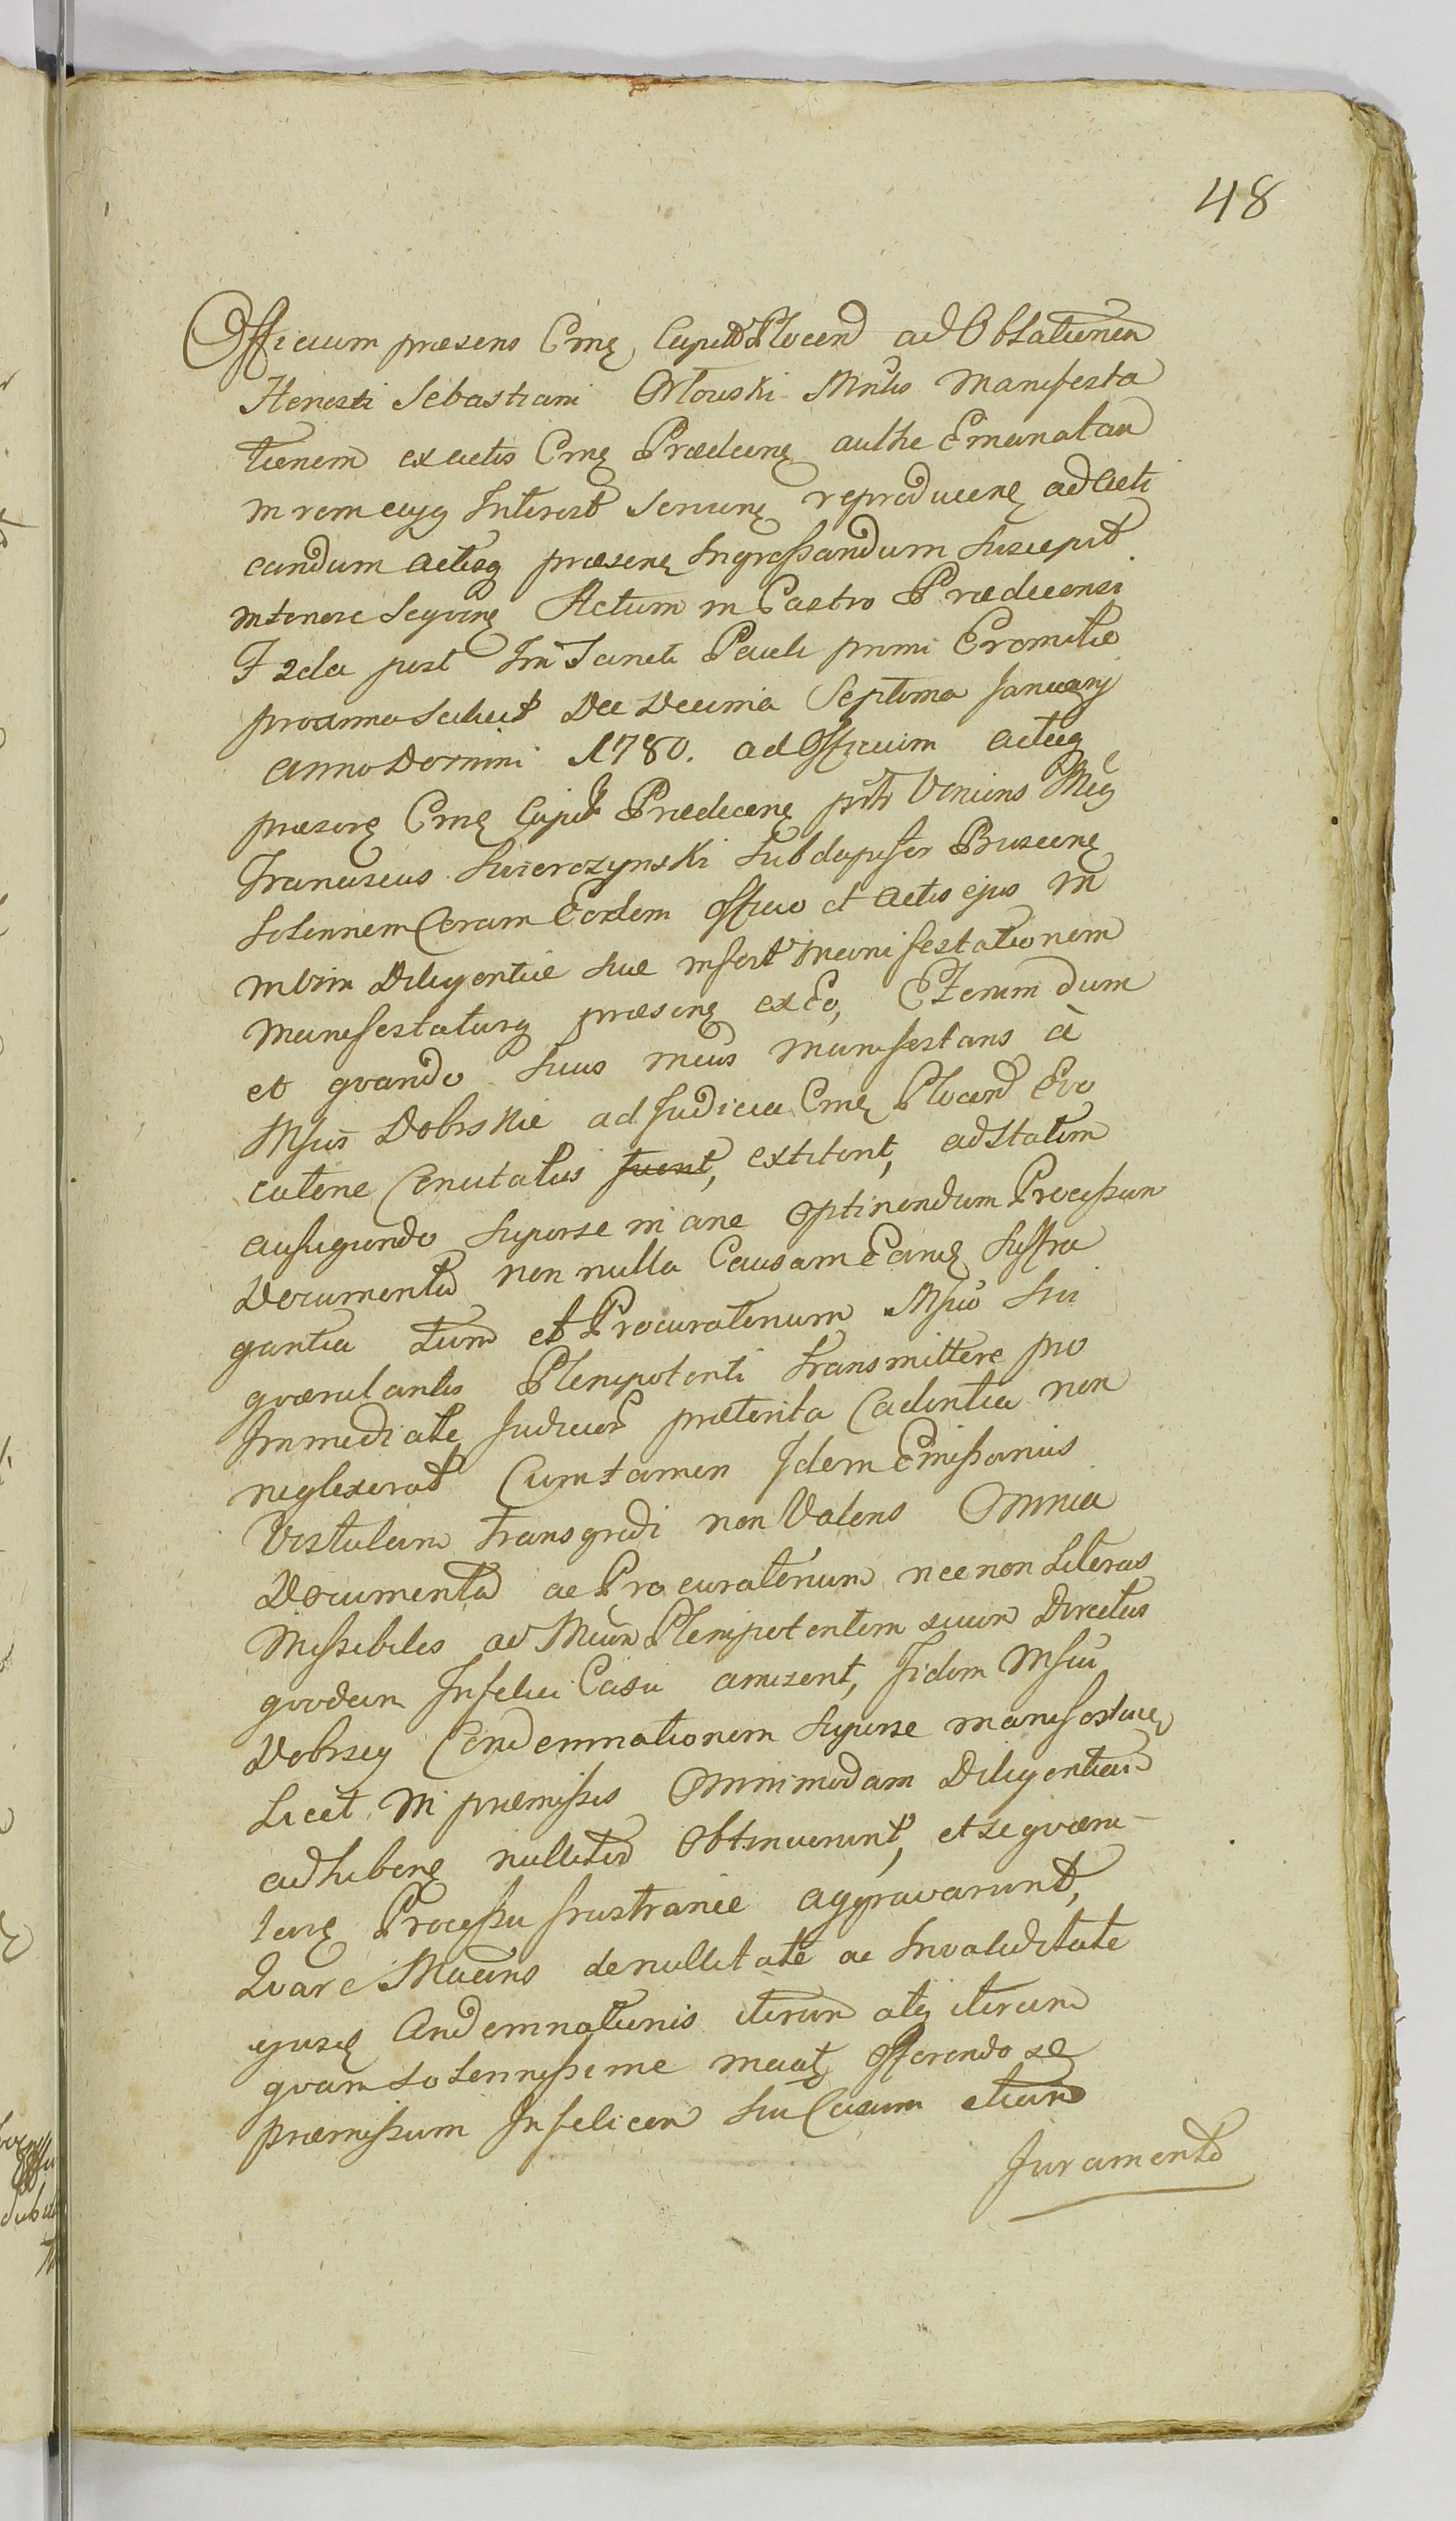 48
Officium præsens Crnę Capitℓ Plocen ad Oblationem
Honesti Sebastiani Orłowski Mnlis Manifesta
tionem ex actis Crnę Prædecenę authe Emanatam
in rem cujq Interest Serviens reproducenę ad acti
candum actisq præsenę Ingrossandum Suscepit
in tenore seqvenę Actum in Castro Prædecensi
F 2da post Fm Sancti Pauli primi Eromitæ
proxima scilicet Die Decima Septima January
anno Domini 1780. ad Officium actaq
præsenę Crnę Capit Prædecenę psłr Veniens Mgę
Franciscus Swierczynski Subdapifer Buscenę
Solennem Coram Eodem officio et actis ejus in
in vim Diligentiæ suæ infert Manifestationem
Manifestaturq præsenę ex Eo, Etenim dum
et qvando Suus meus manifestans à
Msuis Dobrskie ad Judicia Crnę Plocen Evo
catone Concitatus fuent, extitent, ad statim
aufugiendo Superse in ane optinendum Processum
Documenta non nulla Causam Eanę Suffra
gantia tum et Procuratorium Msuo sui
qværulantis Plenipotenti transmittere pro
Immediate Judicior præterita Cadentia non
neglexerat Cum tamen Idem Emissarius
Vistulam transgredi non Valens Omnia
Documenta ac Procuratorium nec non Literas
Missibiles ad Meum Plenipotentem suum Directas
qvodam Infelici Casu amisent, Iidem Msui
Dobrscy Condemnationem Superse manifestuę
Licet in præmissis Omnimodam Diligentiam
adhibenę nulliter Obtinuerunt, et se qværu-
lanę Processu frustranie aggravarunt,
Qvare Muuns de nullitate ac Invaliditate
ejusę Condemnationis iterum atq iterum
qvam solennissime mcatę offerendo se
præmissum Infelicem sui Casum etiam
Juramento